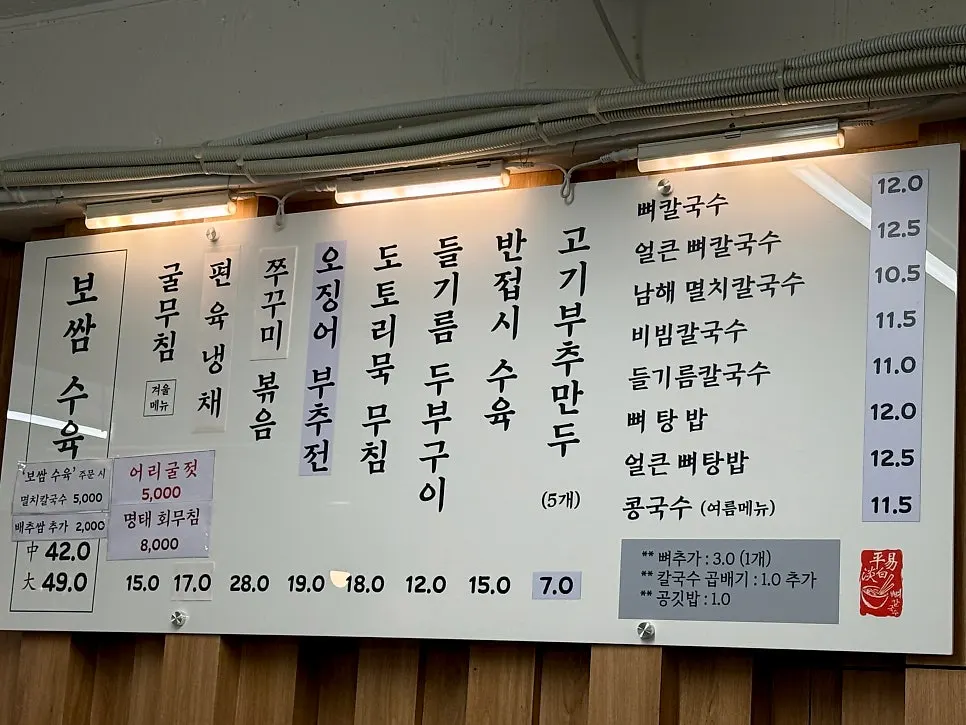 보쌈 수육
'보쌈 수육' 주문 시
멸치칼국수 5,000
배추쌈 추가 2,000
中 42.0
大 49.0
굴무침
겨울
메뉴
15.0
어리굴젓
5,000
명태 회무침
8,000
편육냉채
17.0
쭈꾸미 볶음
28.0
오징어 부추전
19.0
도토리묵 무침
18.0
들기름 두부구이
12.0
반접시 수육
15.0
고기부추만두
(5개)
7.0
뼈칼국수 12.0
얼큰 뼈칼국수 12.5
남해 멸치칼국수 10.5
비빔칼국수 11.5
들기름칼국수 11.0
뼈 탕 밥 12.0
얼큰 뼈탕밥 12.5
콩국수 (여름메뉴) 11.5
** 뼈추가 : 3.0 (1개)
** 칼국수 곱배기 : 1.0 추가
** 공깃밥 : 1.0
平易
淡白
뼈칼국수